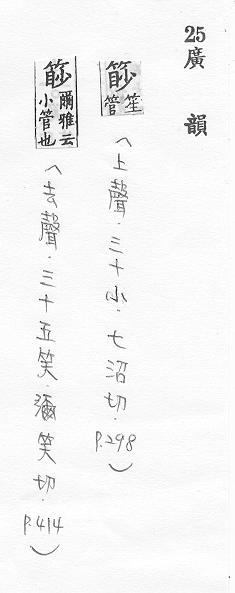 25廣韻
篎笙管（上聲．三十小．七沼切．P.298）
篎爾雅云小管也（去聲．三十五笑．彌笑切．P.414）